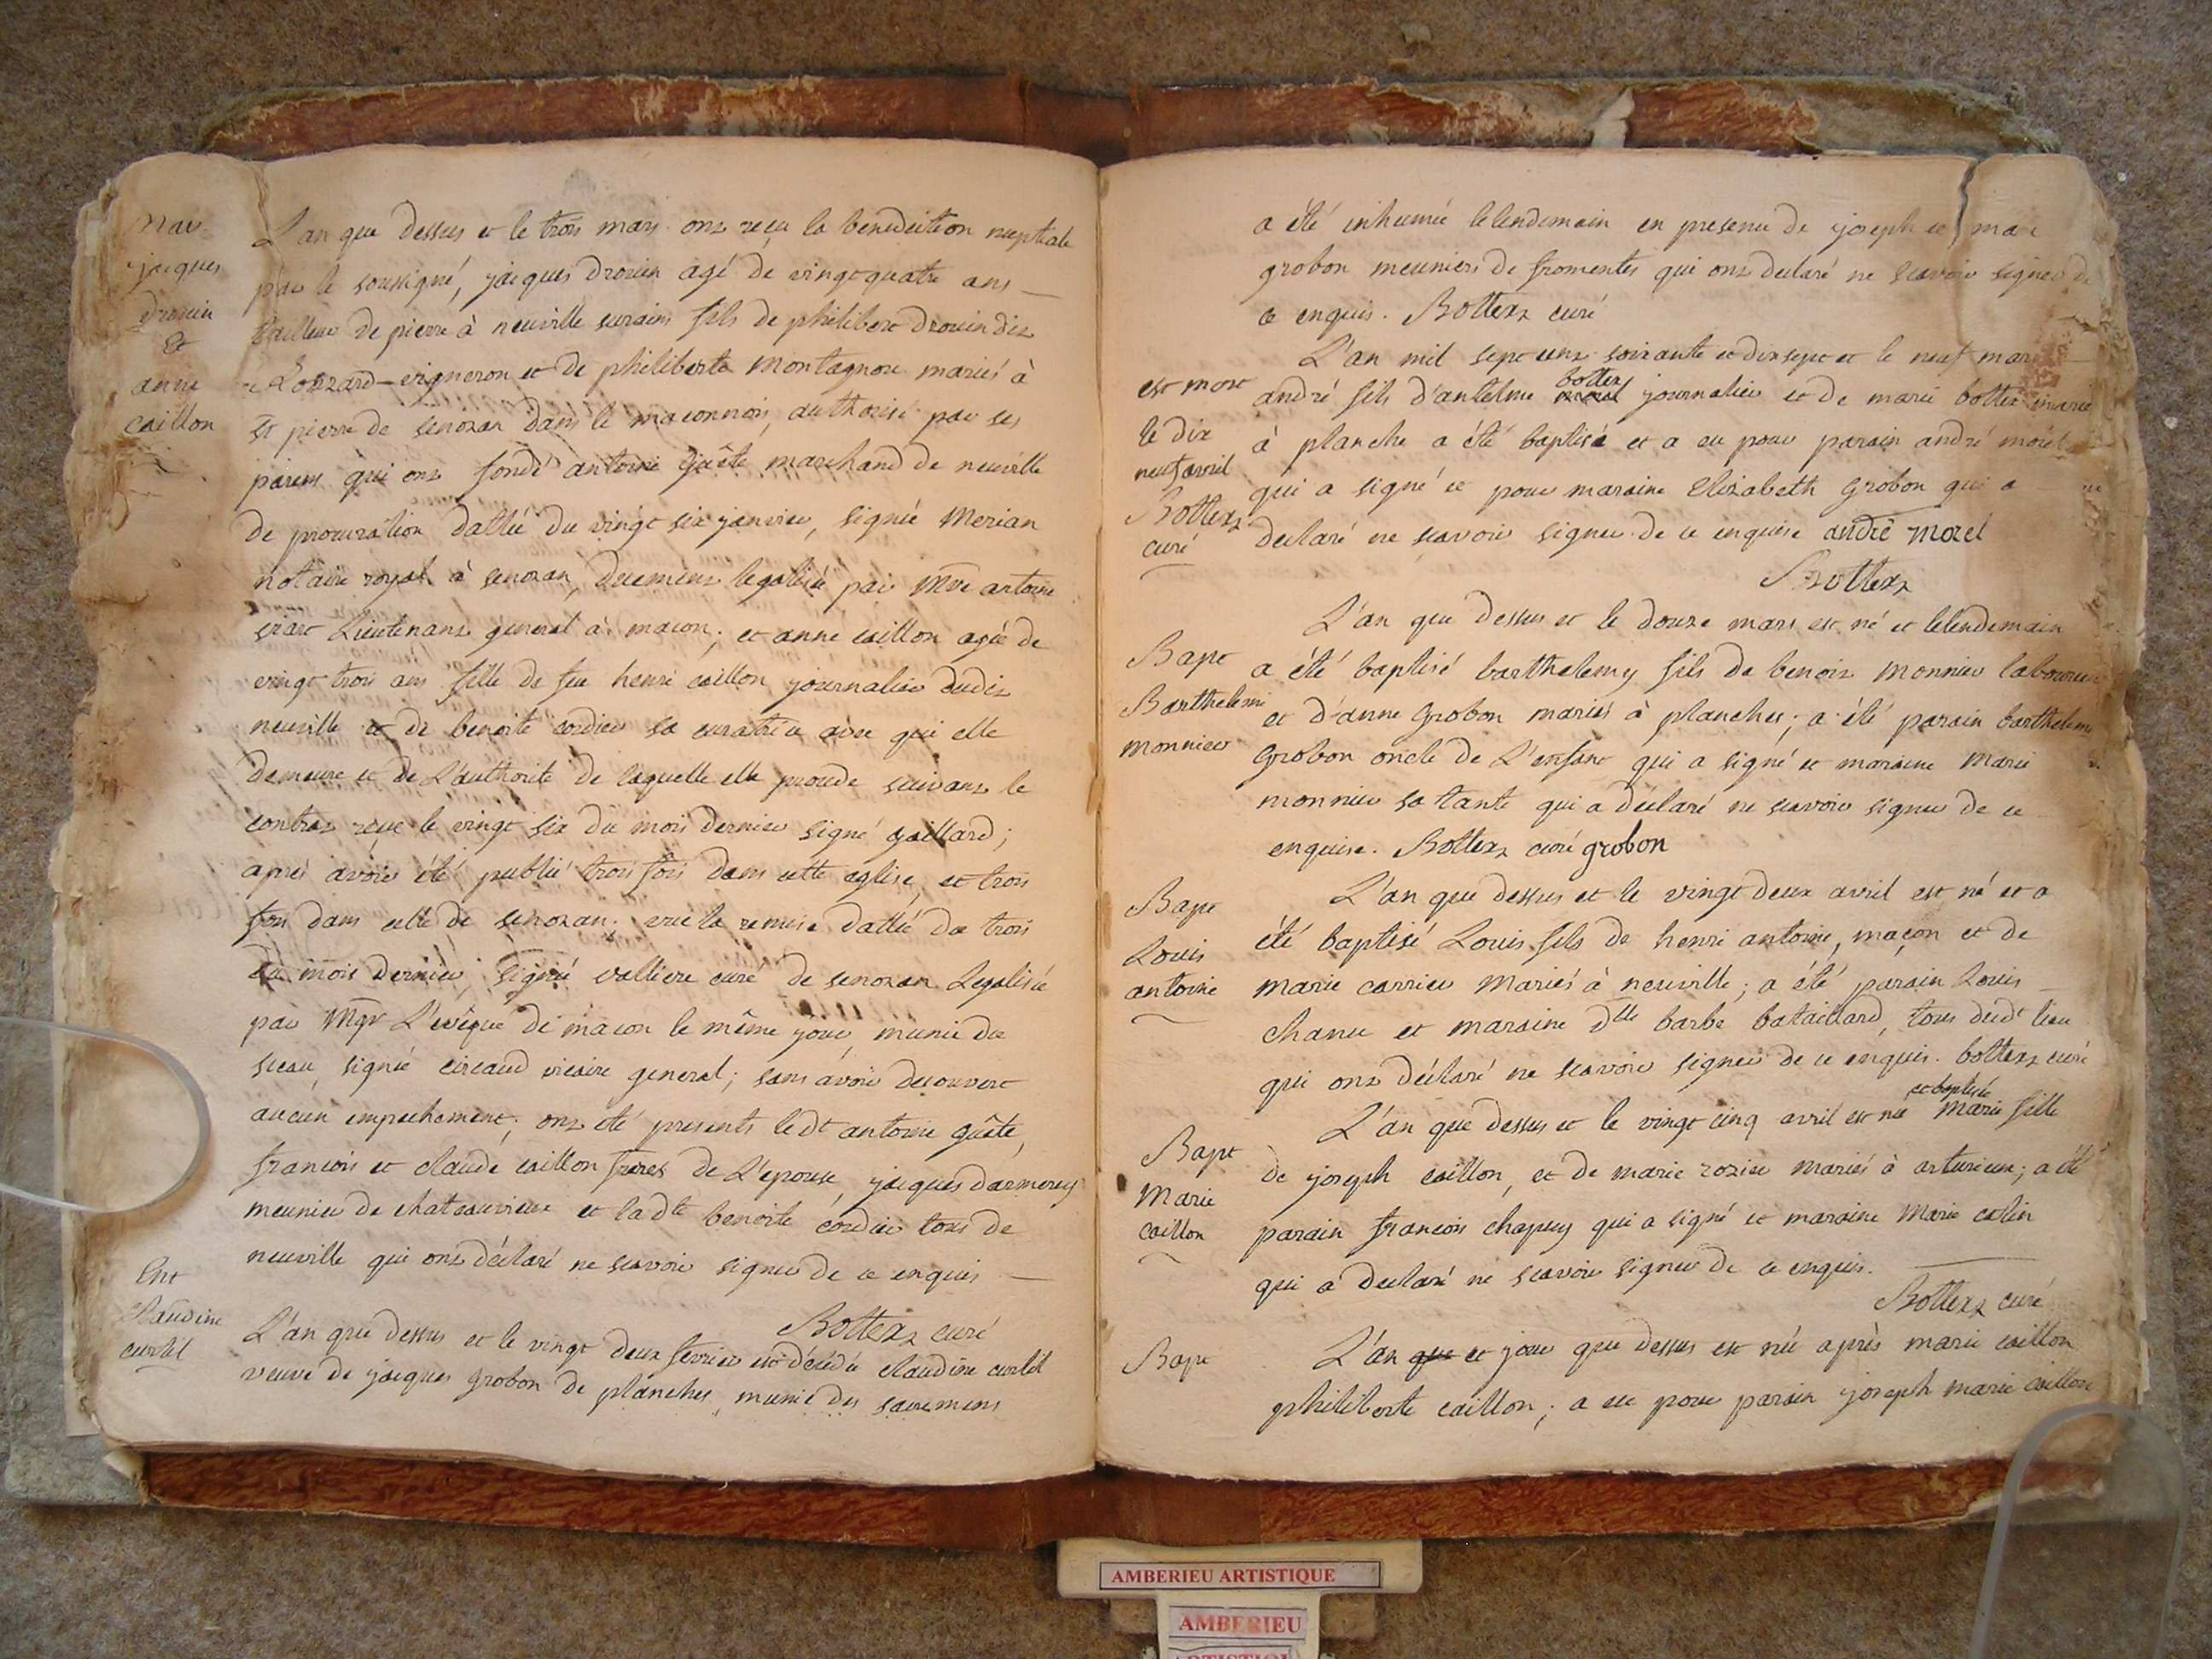 Mar
jacques
drouin
Et
anne
caillon
L'an que dessus et le trois mars ont reçu la benediction nuptiale
par le soussigné, jacques drouin agé de vingt quatre ans
tailleur de pierre à neuville surains fils de philibert drouin dit
vigneron et de philiberte Montagnon mariés à
st pierre de senozan dans le maconnois, authorisé par ses
parens qui ont fondé antoine guête marchand de neuville
de procuration dattée du vingt six janvier, signée Merian
notaire royal à senozan, duement legalisée par Mre antoine
Lieutenant general à macon; et anne caillon agée de
vingt trois ans fille de feu henri caillon journalier dudit
neuville et de benoite cordier sa curatrice avec qui elle
demeure et de L'authorité de laquelle elle procede suivant le
contrat reçu le vingt six du mois dernier signé gaillard;
aprés avoir été publié trois fois dans cette eglise, et trois
fois dans celle de senozan; vue la remise dattée du trois
du mois dernier, signée valliere curé de senozan Legalisée
par Mgr L'evêque de macon le même jour, munie du
sceau, signée circaud vicaire general; sans avoir decouvert
aucun empechement; ont été presents ledt antoine guête,
francois et claude caillon freres de L'epouse, jacques darmerey
meunier de chateauvieux et ladte benoite cordier tous de
neuville qui ont déclaré ne scavoir signer de ce enquis
Bottex curé
Ent
Claudine
curlit
L'an que dessus et le vingt deux fevrier est décédée claudine curlit
veuve de jacques grobon de planches, munie des sacremens
a été inhumée lelendemain en presence de joseph et marc
grobon meuniers de fromentes qui ont declaré ne scavoir signer de
ce enquis. Bottex curé
est mort
le dix
neuf avril
Bottex
curé
L'an mil sept cent soixante et dix sept et le neuf mars
andré fils d'antelme botter journalier et de marie botter mariés
à planche a été baptisé et a eu pour parain andré morel
qui a signé et pour maraine Elizabeth Grobon qui a
declaré ne scavoir signer de ce enquise andrê morel
Bottex
Bapt
Barthelemi
monnier
L'an que dessus et le douze mars est né et lelendemain
a été baptisé barthelemy fils de benoit Monnier laboureur
et d'anne Grobon mariés à planches; a été parain barthelemi
Grobon oncle de L'enfant qui a signé et maraine Marie
monnier sa tante qui a déclaré ne scavoir signer de ce
enquise. Bottex curé grobon
Bapt
Louis
antoine
L'an que dessus et le vingt deux avril est né et a
été baptisé Louis fils de henri antoine, maçon et de
Marie carrier Mariés à neuville; a été parain Louis
chanu et maraine Dlle barbe bataillard, tous dudt lieu
qui ont déclaré ne scavoir signer de ce enquis. bottex curé
Bapt
Marie
caillon
L'an que dessus et le vingt cinq avril est née et baptisée marie fille
de joseph caillon, et de marie rozier mariés à arturieux; a été
parain francois chapuy qui a signé et maraine Marie colin
qui a declaré ne scavoir signer de ce enquis.
Bottex curé
Bapt
L'an que et jour que dessus est née après marie caillon
philiberte caillon; a eu pour parain joseph marie caillon
AMBERIEU ARTISTIQUE
AMBERIEU
ARTISTIQUE